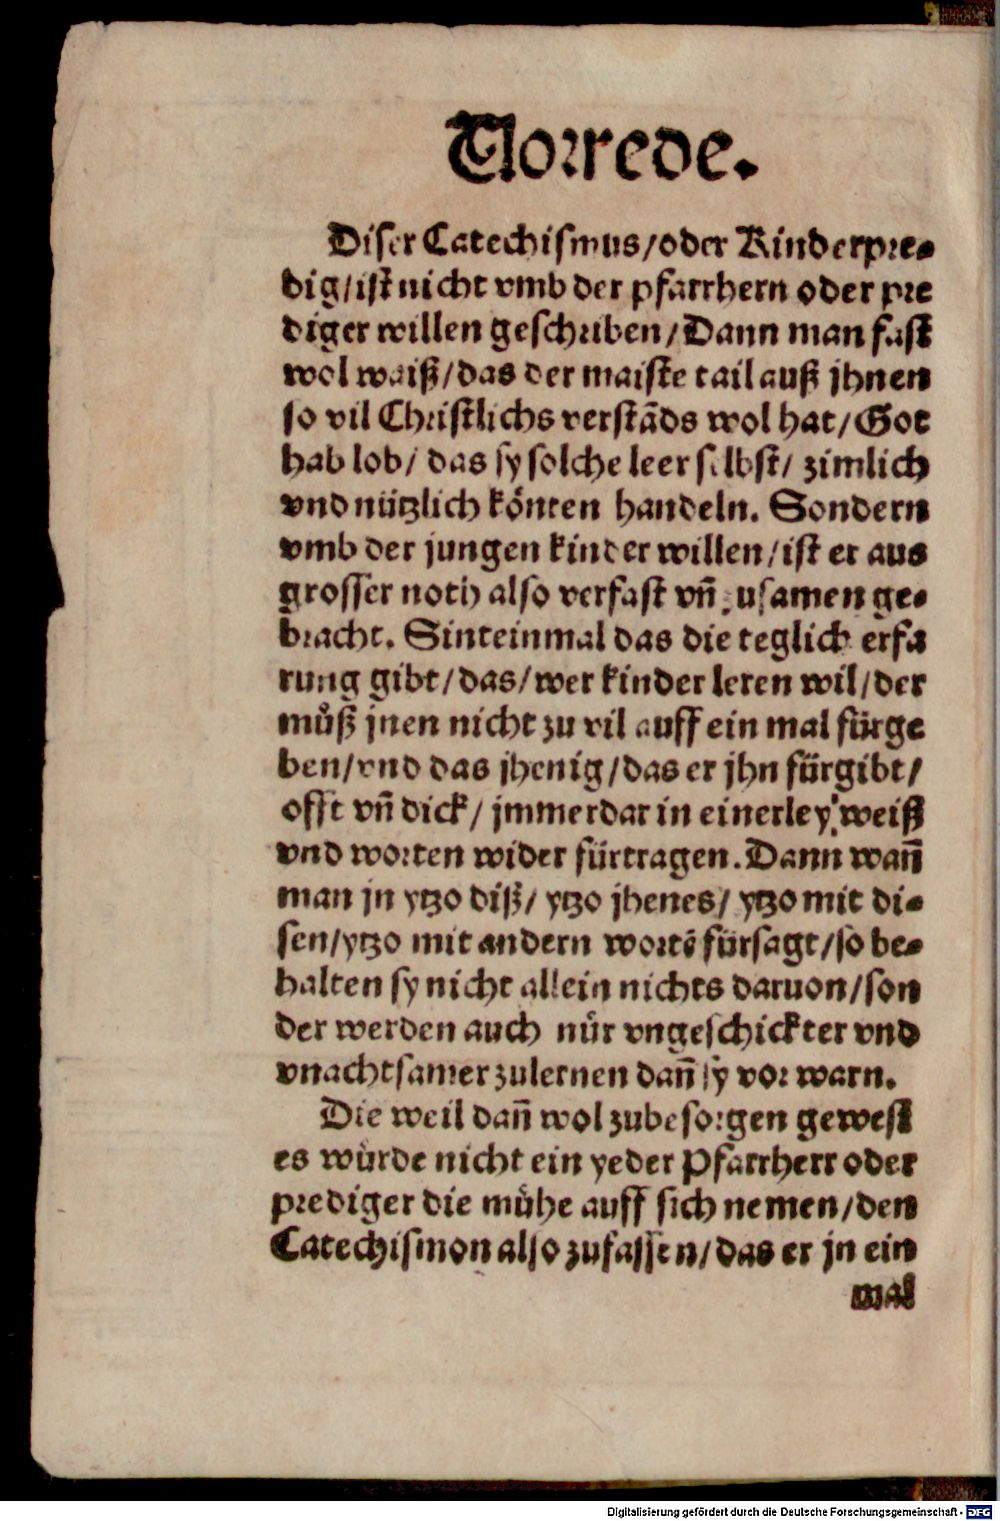 Vorrede.
Diser Catechismus/oder Kinderpre-
dig/ist nicht vmb der pfarrhern oder pre
diger willen geschriben/Dann man fast
wol waiß/das der maiste tail auß jhnen
so vil Christlichs verstãds wol hat/Got
hab lob/ das sy solche leer selbst/ zimlich
vnd nützlich könten handeln. Sondern
vmb der jungen kinder willen/ist er aus
grosser noth also verfast vñ zusamen ge-
bracht. Sinteinmal das die teglich erfa
rung gibt/das/wer kinder leren wil/der
můß jnen nicht zu vil auff ein mal fürge
ben/vnd das jhenig/das er jhn fürgibt/
offt vñ dick/ jmmerdar in einerley weiß
vnd worten wider fürtragen.Dann wañ
man jn ytzo diß/ ytzo jhenes/ ytzo mit di-
sen/ytzo mit andern wortẽ fürsagt/so be-
halten sy nicht allein nichts daruon/son
der werden auch nůr vngeschickter vnd
vnachtsamer zulernen dañ sy vor warn.
Die weil dañ wol zubesorgen gewest
es würde nicht ein yeder Pfarrherr oder
prediger die mühe auff sich nemen/den
Catechismon also zufassen/das er jn ein
mal
Digitalisierung gefördert durch die Deutsche Forschungsgemeinschaft - DFG